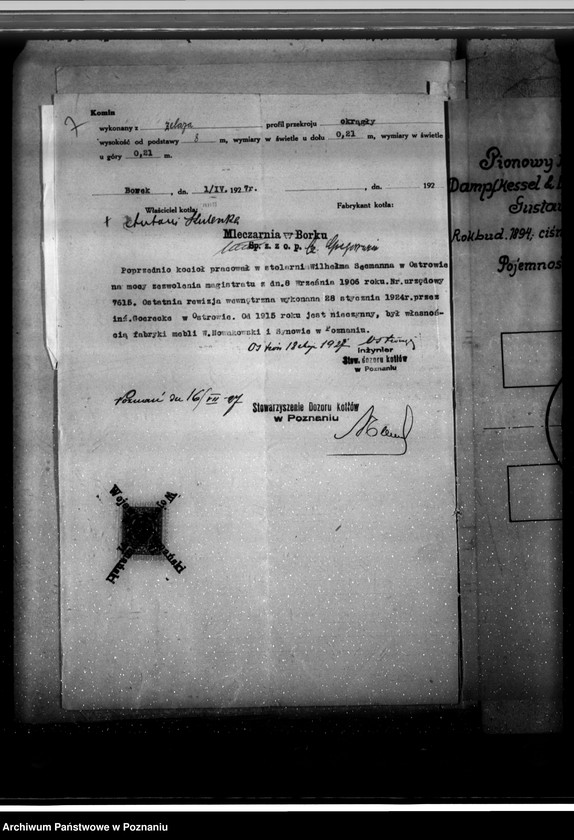 Komin
wykonany z żelaza profil przekroju okrągły
wysokość od podstawy 8 m, wymiary w świetle u dołu 0,21 m, wymiary w świetle
u góry 0,21 m.
Borek, dn. 1/IV. 1927r. , dn. 192
Właściciel kotła: Fabrykant kotła:
Mleczarnia w Borku
Sp. z. z o. p.
Poprzednio kocioł pracował w stolarni Wilhelma Seemanna w Ostrowie
na mocy zezwolenia magistratu z dn.8 Września 1906 roku.Nr.urzędowy
7615. Ostatnia rewizja wewnętrzna wykonana 28 stycznia 1924r.przez
inż.Scerecke w Ostrowie. Od 1915 roku jest nieczynny, był własnoś-
cią fabryki mebli W.Nowakowski i Synowie w Poznaniu.
1927
Inżynier
Stow. dozoru kotłów
w Poznaniu
Poznań dn 16/VII 27
Stowarzyszenie Dozoru Kotłów
w Poznaniu
Pionowy
Dampfkessel &
Gusta
Rokbud. 1894. ciśn
Pojemnoś
Archiwum Państwowe w Poznaniu